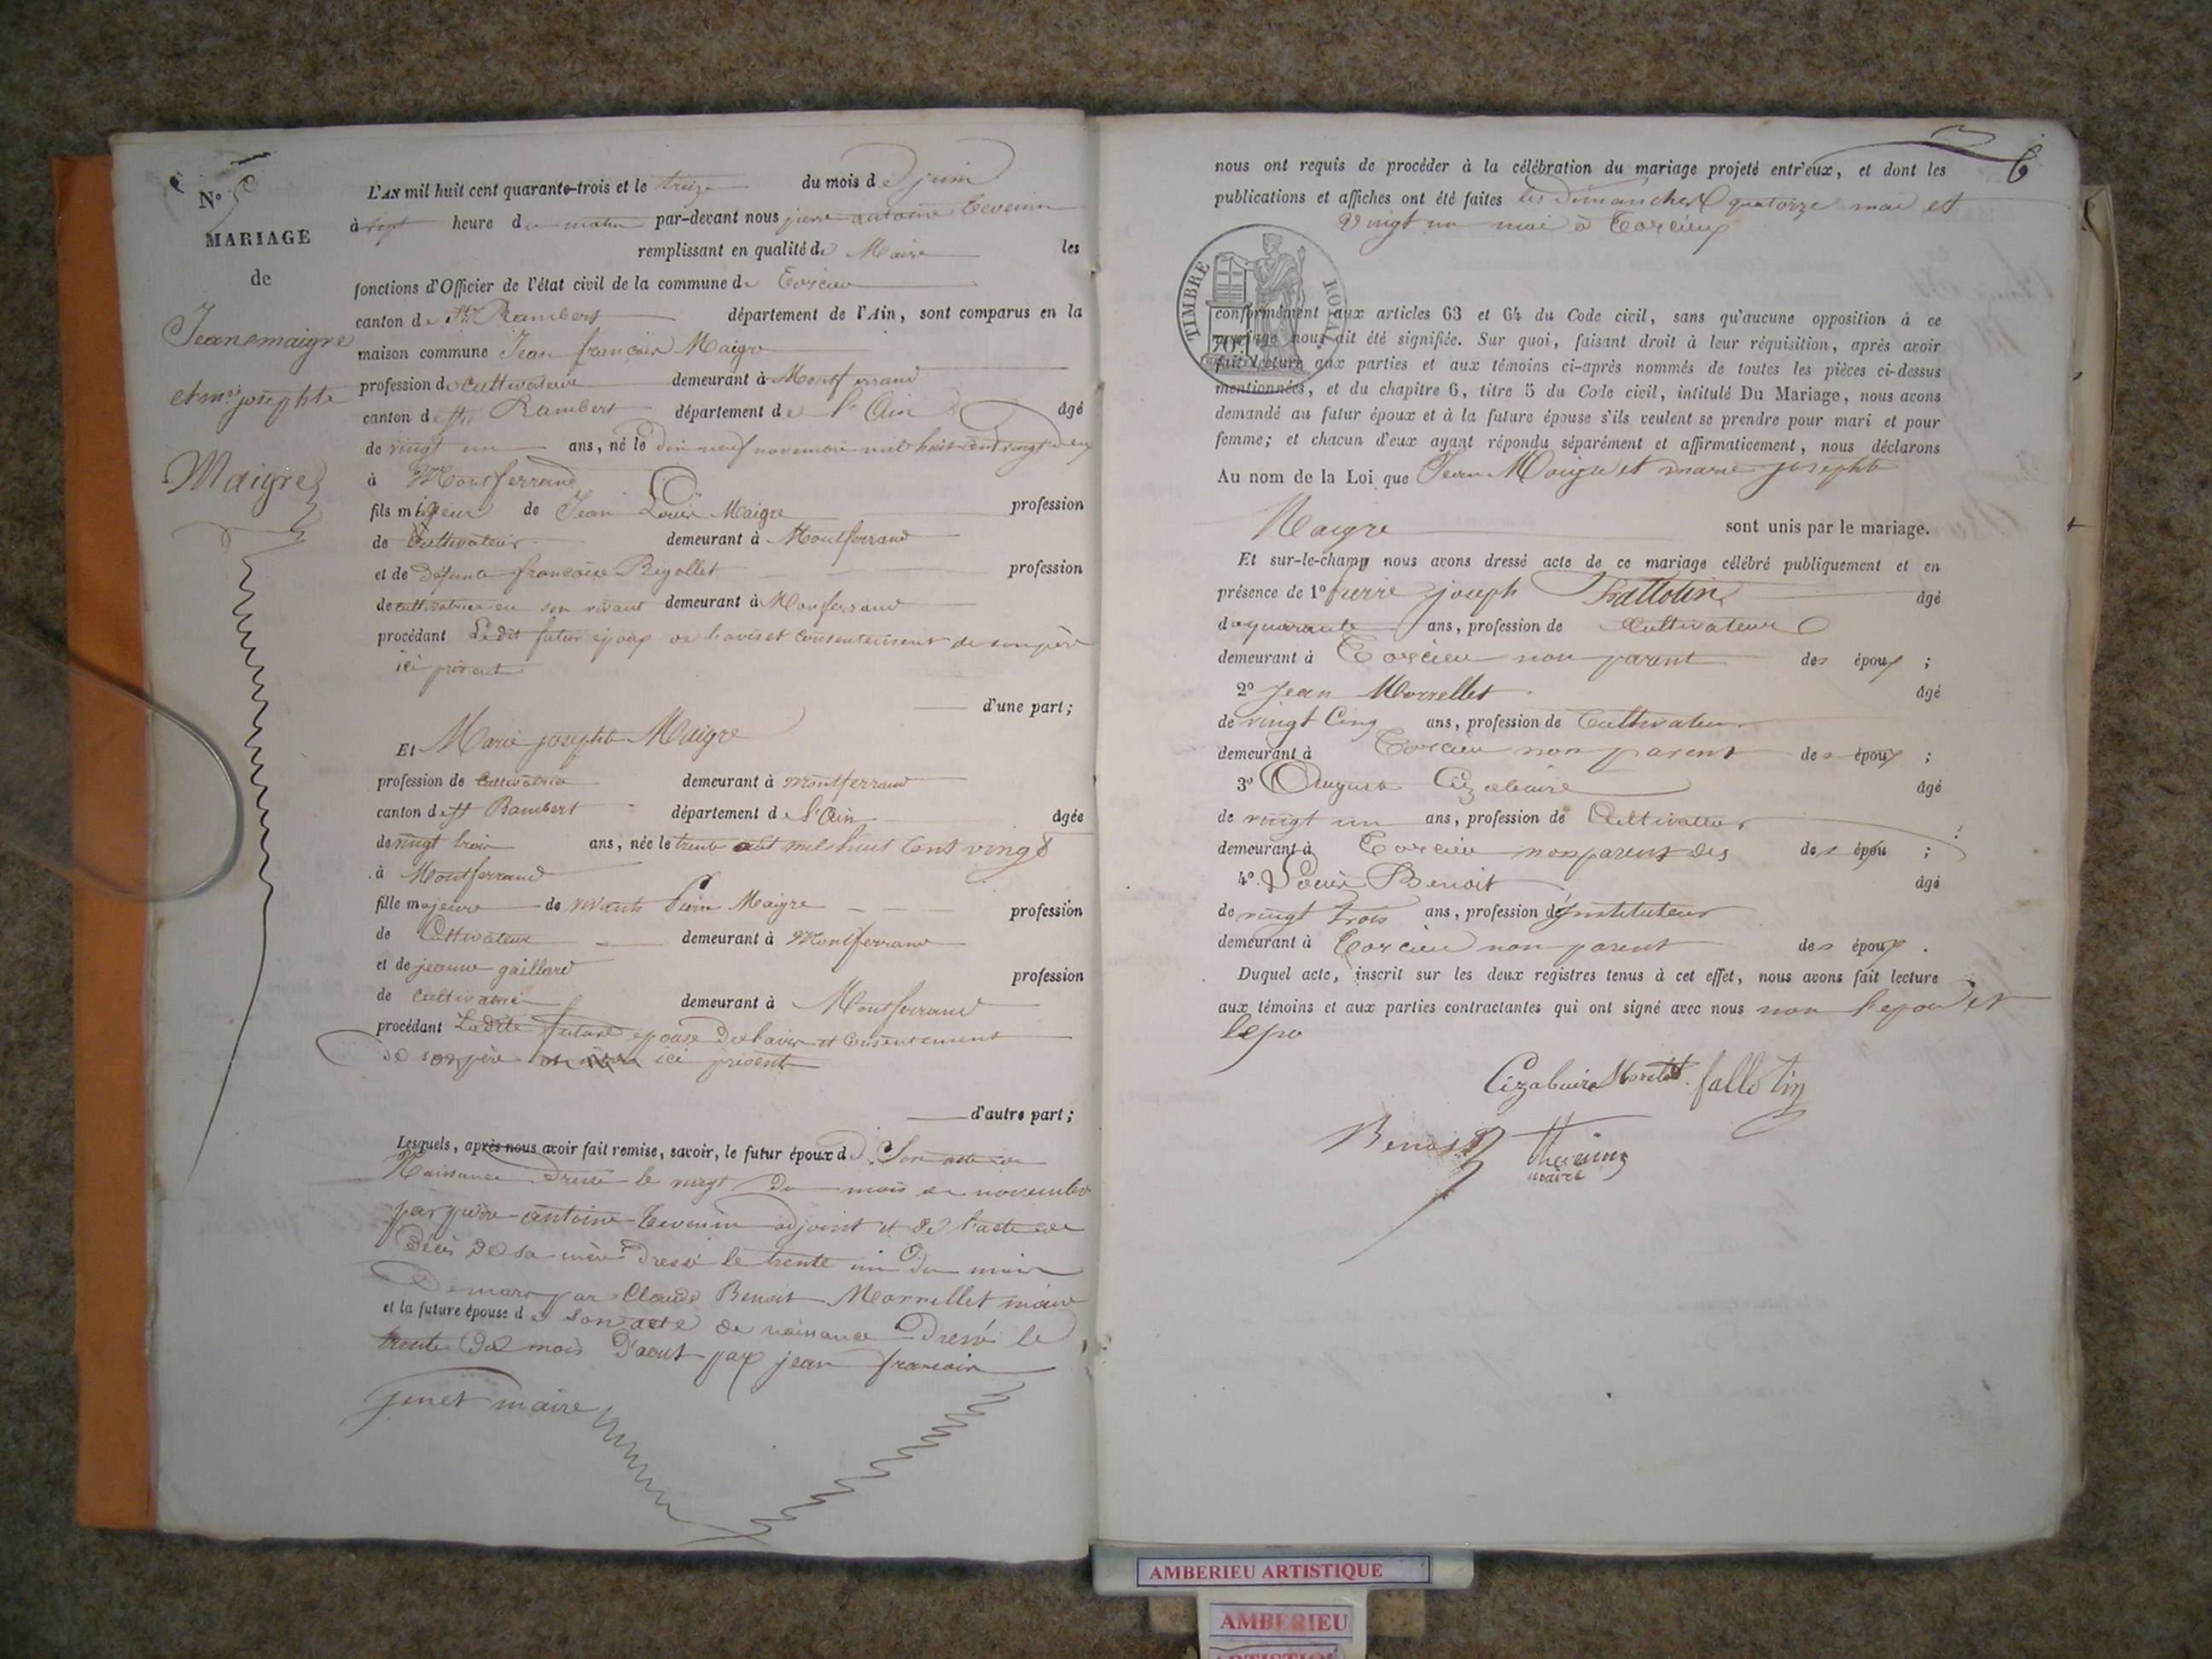 N° 5
MARIAGE
de
Jean maigre
et m.ie josephte
Maigre
L'AN mil huit cent quarante-trois et le treize du mois de juin
à sept heure du matin par-devant nous pierre antoine Tevenin
remplissant en qualité de Maire les
fonctions d'Officier de l'état civil de la commune de Torcieu
canton de St Rambert département de l'Ain, sont comparus en la
maison commune Jean françois Maigre
profession de Cultivateur demeurant à Montferrand
canton de St Rambert département de l'Ain âgé
de vingt un ans, né le dix neuf novembre mil huit cent vingt deux
à Montferrand
fils majeur de Jean Louis Maigre profession
de Cultivateur demeurant à Montferrand
et de défunte francoise Regollet profession
de cultivatrice en son vivant demeurant à Monferrand
procédant Le dit futur époux de l'avis et consentement de son père
ici présent
d'une part;
Et Marie josephte Maigre
profession de Cultivatrice demeurant à montferrand
canton de St Rambert département de l'Ain âgée
de vingt trois ans, née le trente août mil huit Cent vingt
à Montferrand
fille majeure de vivants Pierre Maigre profession
de Cultivateur demeurant à Montferrand
et de jeanne gaillard profession
de cultivatrice demeurant à Montferrand
procédant Ladite future epouse de l'avis et Consentement
de son père ici présent
d'autre part;
Lesquels, après nous avoir fait remise, savoir, le futur époux d de Son acte de
Naissance dressé le vingt du mois de novembre
par pierre antoine Tevenin adjoint et de l'acte de
Décès de sa mère dressé le trente un du mois
De mars par Claude Benoit Morrellet maire
et la future épouse de son acte de naissance Dressé le
trente du mois D'aout par jean francois
jenet maire
6
nous ont requis de procéder à la célébration du mariage projeté entr'eux, et dont les
publications et affiches ont été faites les dimanches quatorze mai et
vingt un mai à Torcieu
TIMBRE ROYAL
conformément aux articles 63 et 64 du Code civil, sans qu'aucune opposition à ce
mariage nous ait été signifiée. Sur quoi, faisant droit à leur réquisition, après avoir
fait lecture aux parties et aux témoins ci-après nommés de toutes les pièces ci-dessus
mentionnées, et du chapitre 6, titre 5 du Code civil, intitulé Du Mariage, nous avons
demandé au futur époux et à la future épouse s'ils veulent se prendre pour mari et pour
femme; et chacun d'eux ayant répondu séparément et affirmativement, nous déclarons
Au nom de la Loi que Jean Maigre et marie josephte
Maigre sont unis par le mariage.
Et sur-le-champ nous avons dressé acte de ce mariage célébré publiquement et en
présence de 1° Pierre joseph Fallotin âgé
de quarante ans, profession de Cultivateur
demeurant à Torcieu non parent des époux ;
2° Jean Morrellet âgé
de vingt Cinq ans, profession de Cultivateur
demeurant à Torcieu non parent des époux ;
3° August Cizabuire âgé
de vingt un ans, profession de Cultivateur
demeurant à Torcieu non parent des des épou ;
4° Louis Benoit âgé
de vingt trois ans, profession d'instituteur
demeurant à Torcieu non parent des époux .
Duquel acte, inscrit sur les deux registres tenus à cet effet, nous avons fait lecture
aux témoins et aux parties contractantes qui ont signé avec nous non l'epou et
l'epo
Cizabuire Morellet fallotin
Benoit Thevenin
maire
AMBERIEU ARTISTIQUE
AMBERIEU
ARTISTIQUE